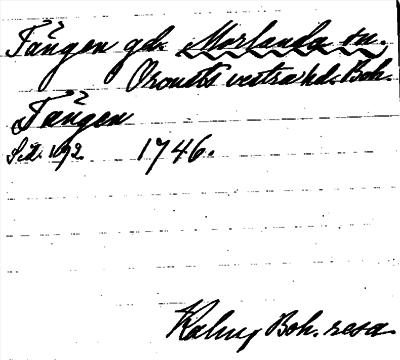 Tången gd. Morlanda sn.
Orousts vestra hd. Boh.
Tången
Sid. 192. 1746.
Kalm, Boh. resa